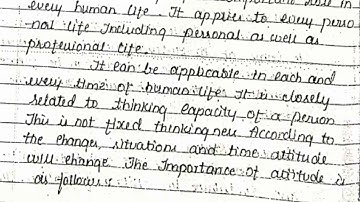 every human life. It applies to every perso
-nal life Including personal as well as
profesional life.
It can be applicable in each and
every time of human life It is closely
related to thinking capacity of a person
This is not fixed thinking According to
the changes, situations and time attitude
will change The Importance of attitude is
as follows :